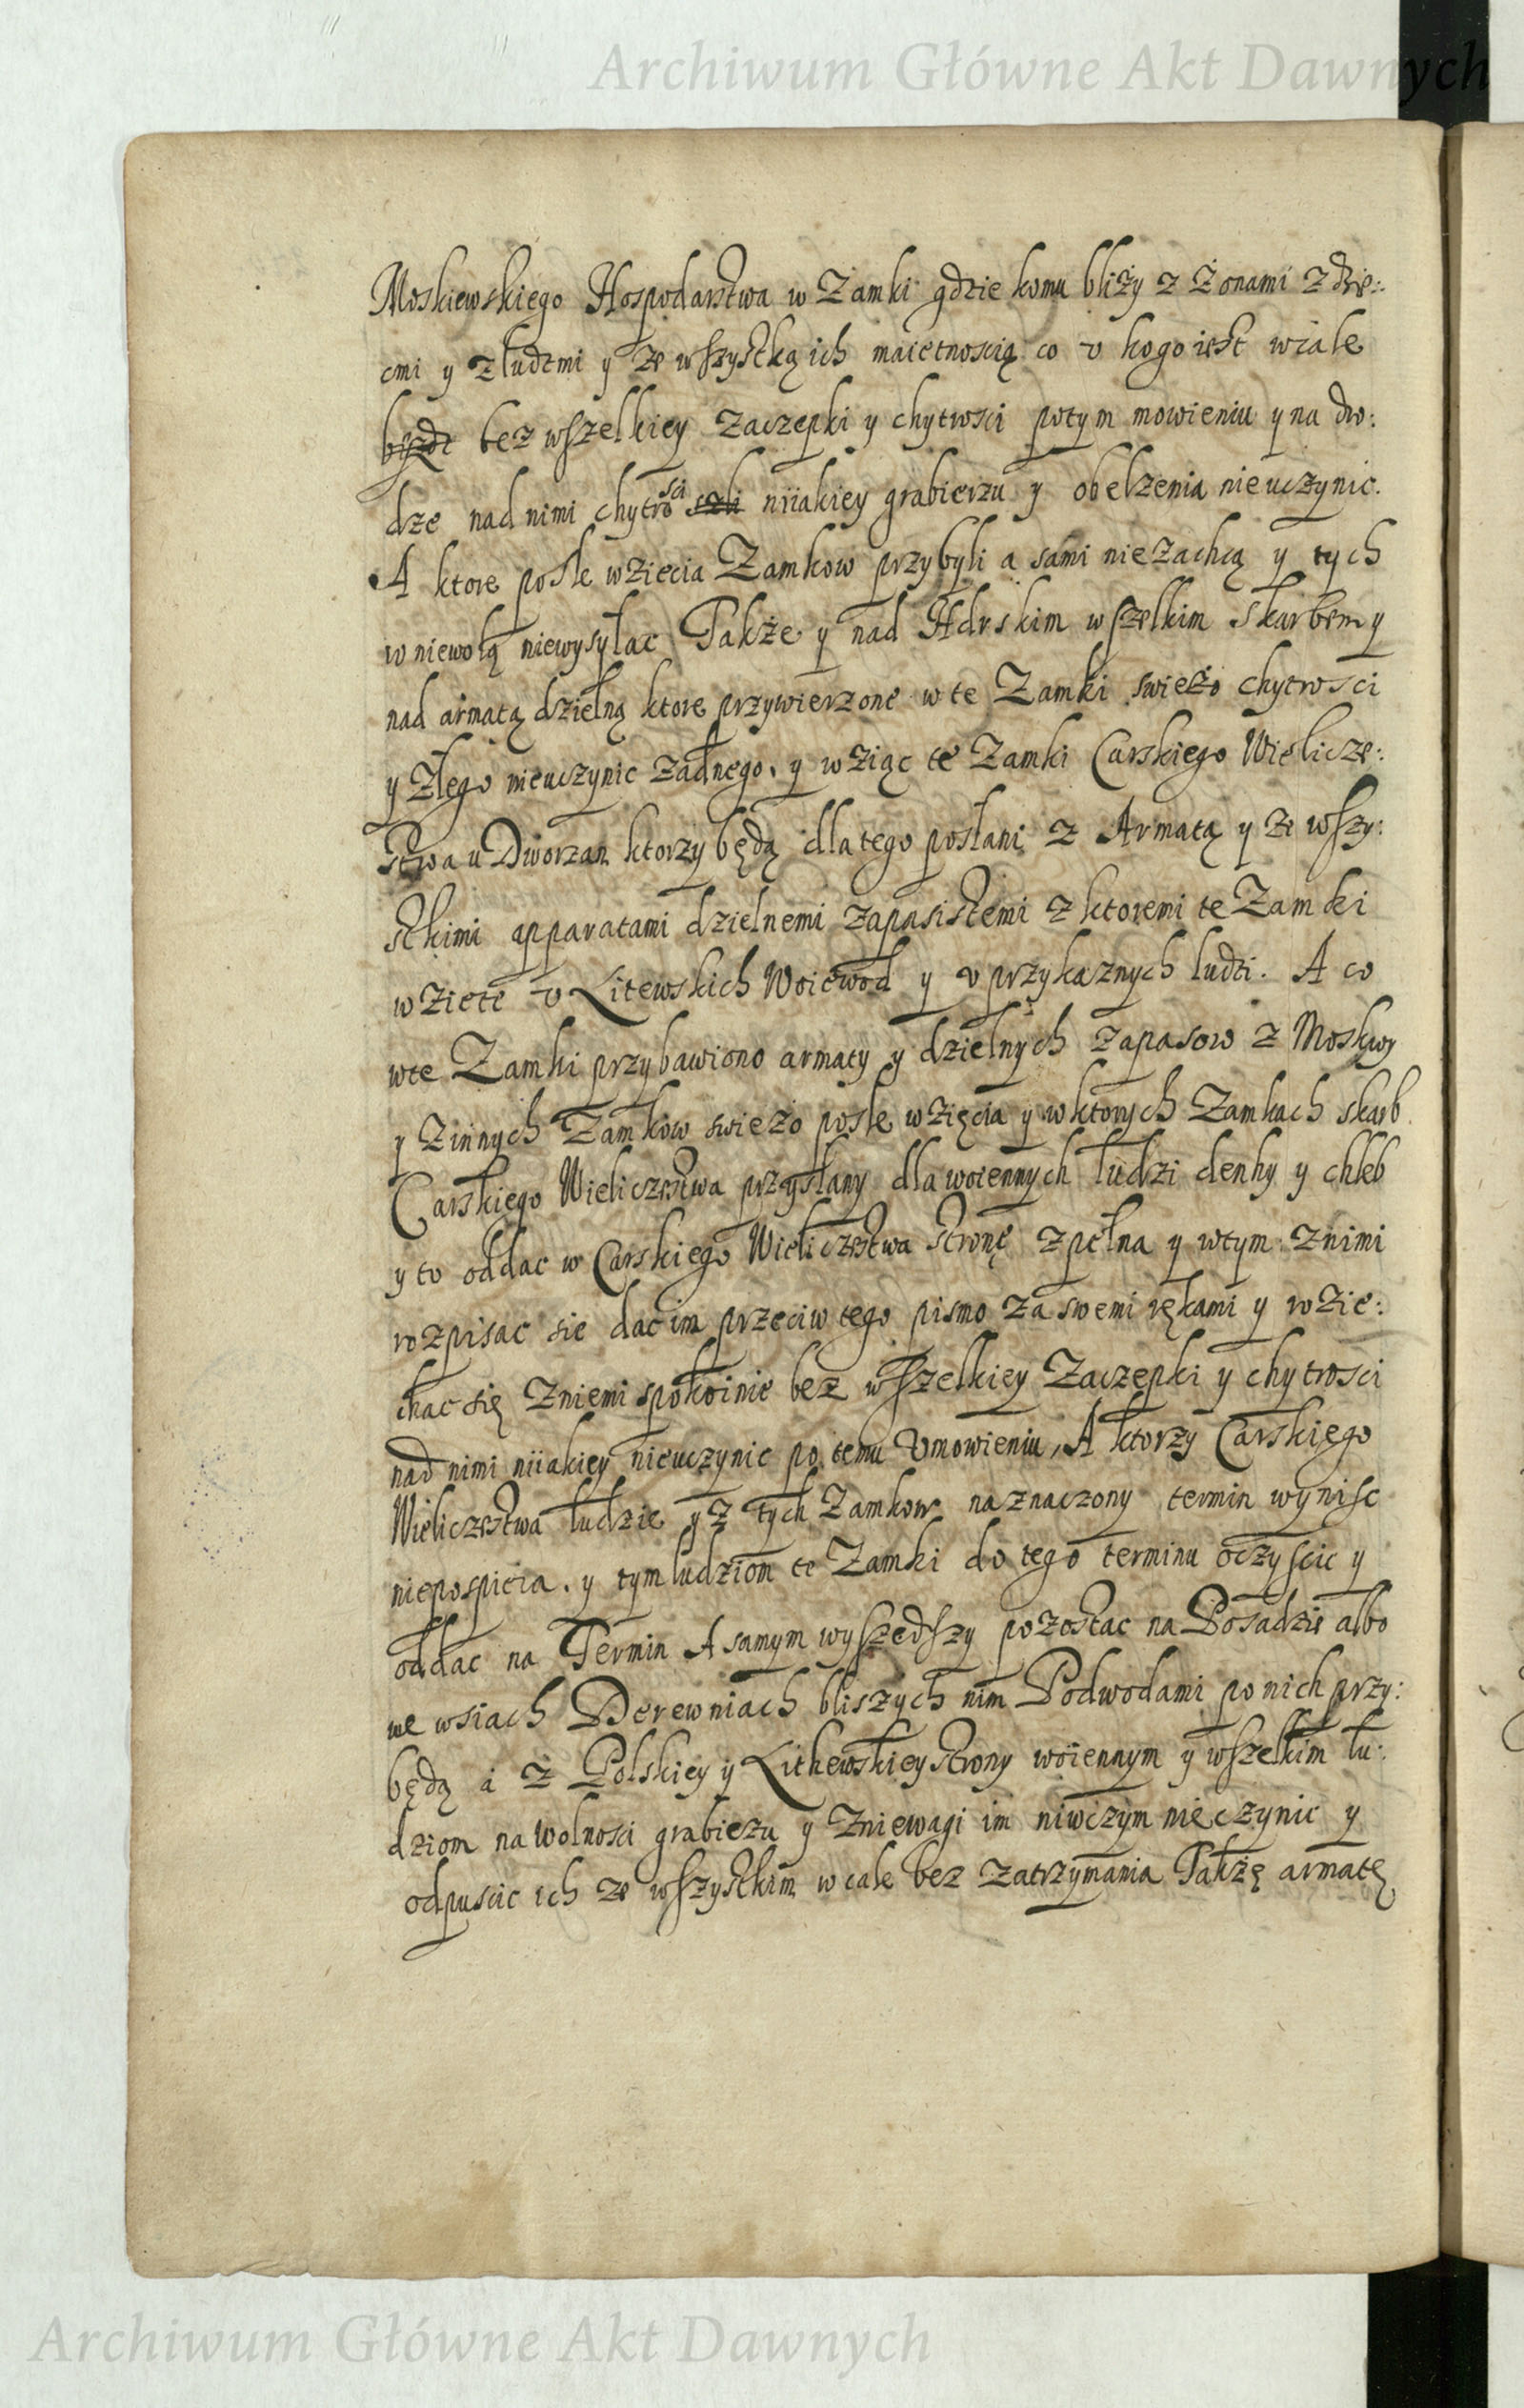 Archiwum Główne Akt Dawnych
Moskiewskiego Hospodarstwa w Zamki gdzie komu bliży z Żonami z dzie:
cmi y z ludzmi y ze wszystką ich maietnoscią co v kogo iest wcale
bydz bez wszelkiey zaczepki y chytrosci potym mowieniu y na dro:
dze nad nimi chytrosci niiakiey grabierzu y obelzenia nieuczynic.
A ktore posle wziecia Zamkow przybyli a sami niezachcą y tych
w niewolą niewysyłac Także y nad Hdrskim wszelkim skarbem y
nad armatą dzielną ktore przywierzone w te Zamki swieżo chytrosci
y złego nieuczynic żadnego. y wziąc te Zamki Carskiego Wielicze:
stwa u Dworzan ktorzy będą dla tego posłani z Armatą y ze wszy:
stkimi apparatami dzielnemi zapasistemi z ktoremi te Zamki
wziete v Litewskich Woiewod y v przykaznych ludzi. A co
wte Zamki przybawiono armaty y dzielnych zapasow z Moskwy
y zinnych Zamkow swieżo posle wzięcia y w ktorych Zamkach skarb
Carskiego Wieliczestwa przysłany dla woiennych ludzi denhy y chleb
y to oddac w Carskiego Wieliczestwa stronę zpełna y wtym znimi
rozpisac sie dac im przeciw tego pismo za swemi rękami y rozie:
chac się zniemi spokoinie bez wszelkiey zaczepki y chytrosci
nad nimi niiakiey nieuczynic po temu vmowieniu, A ktorzy Carskiego
Wieliczestwa ludzie y z tych Zamkow naznaczony termin wynisc
niepospieia. y tym ludziom te Zamki do tego terminu oczyscic y
oddac na Termin A samym wyszedszy pozostac na Posadzie albo
we wsiach Derewniach bliszych nim Podwodami po nich przy:
będą a z Polskiey y Lithewskiey strony woiennym y wszelkim lu:
dziom na wolnosci grabieżu y zniewagi im niwczym nieczynic y
odpuscic ich ze wszystkim wcale bez zatrzymania Także armatę
Archiwum Główne Akt Dawnych